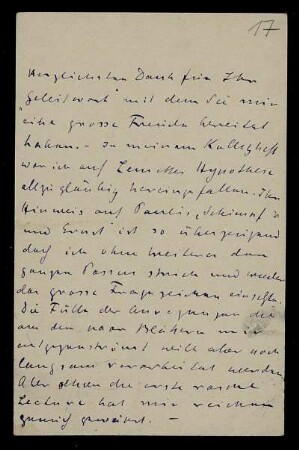 17
Herzlichsten Dank für Ihr
"Geleitwort" mit dem Sie mir
eine grosse Freude bereitet
haben. - In meinem Kollegheft
war ich auf Hypothese
allzugläubig hereingefallen. Ihr
Hinweis auf Paulis, Schimpf
und Ernst ist so überzeugend
dass ich ohne weiteres den
ganzen Passus strich und wieder
das grosse Fragezeichen einsetzte.
Die Fülle der Anregungen die
aus den paar Blättern mir
entgegenströmt will aber noch
langsam verarbeitet werden.
Aber schon die erste rasche
Lectüre hat mir reichen
gewährt. -